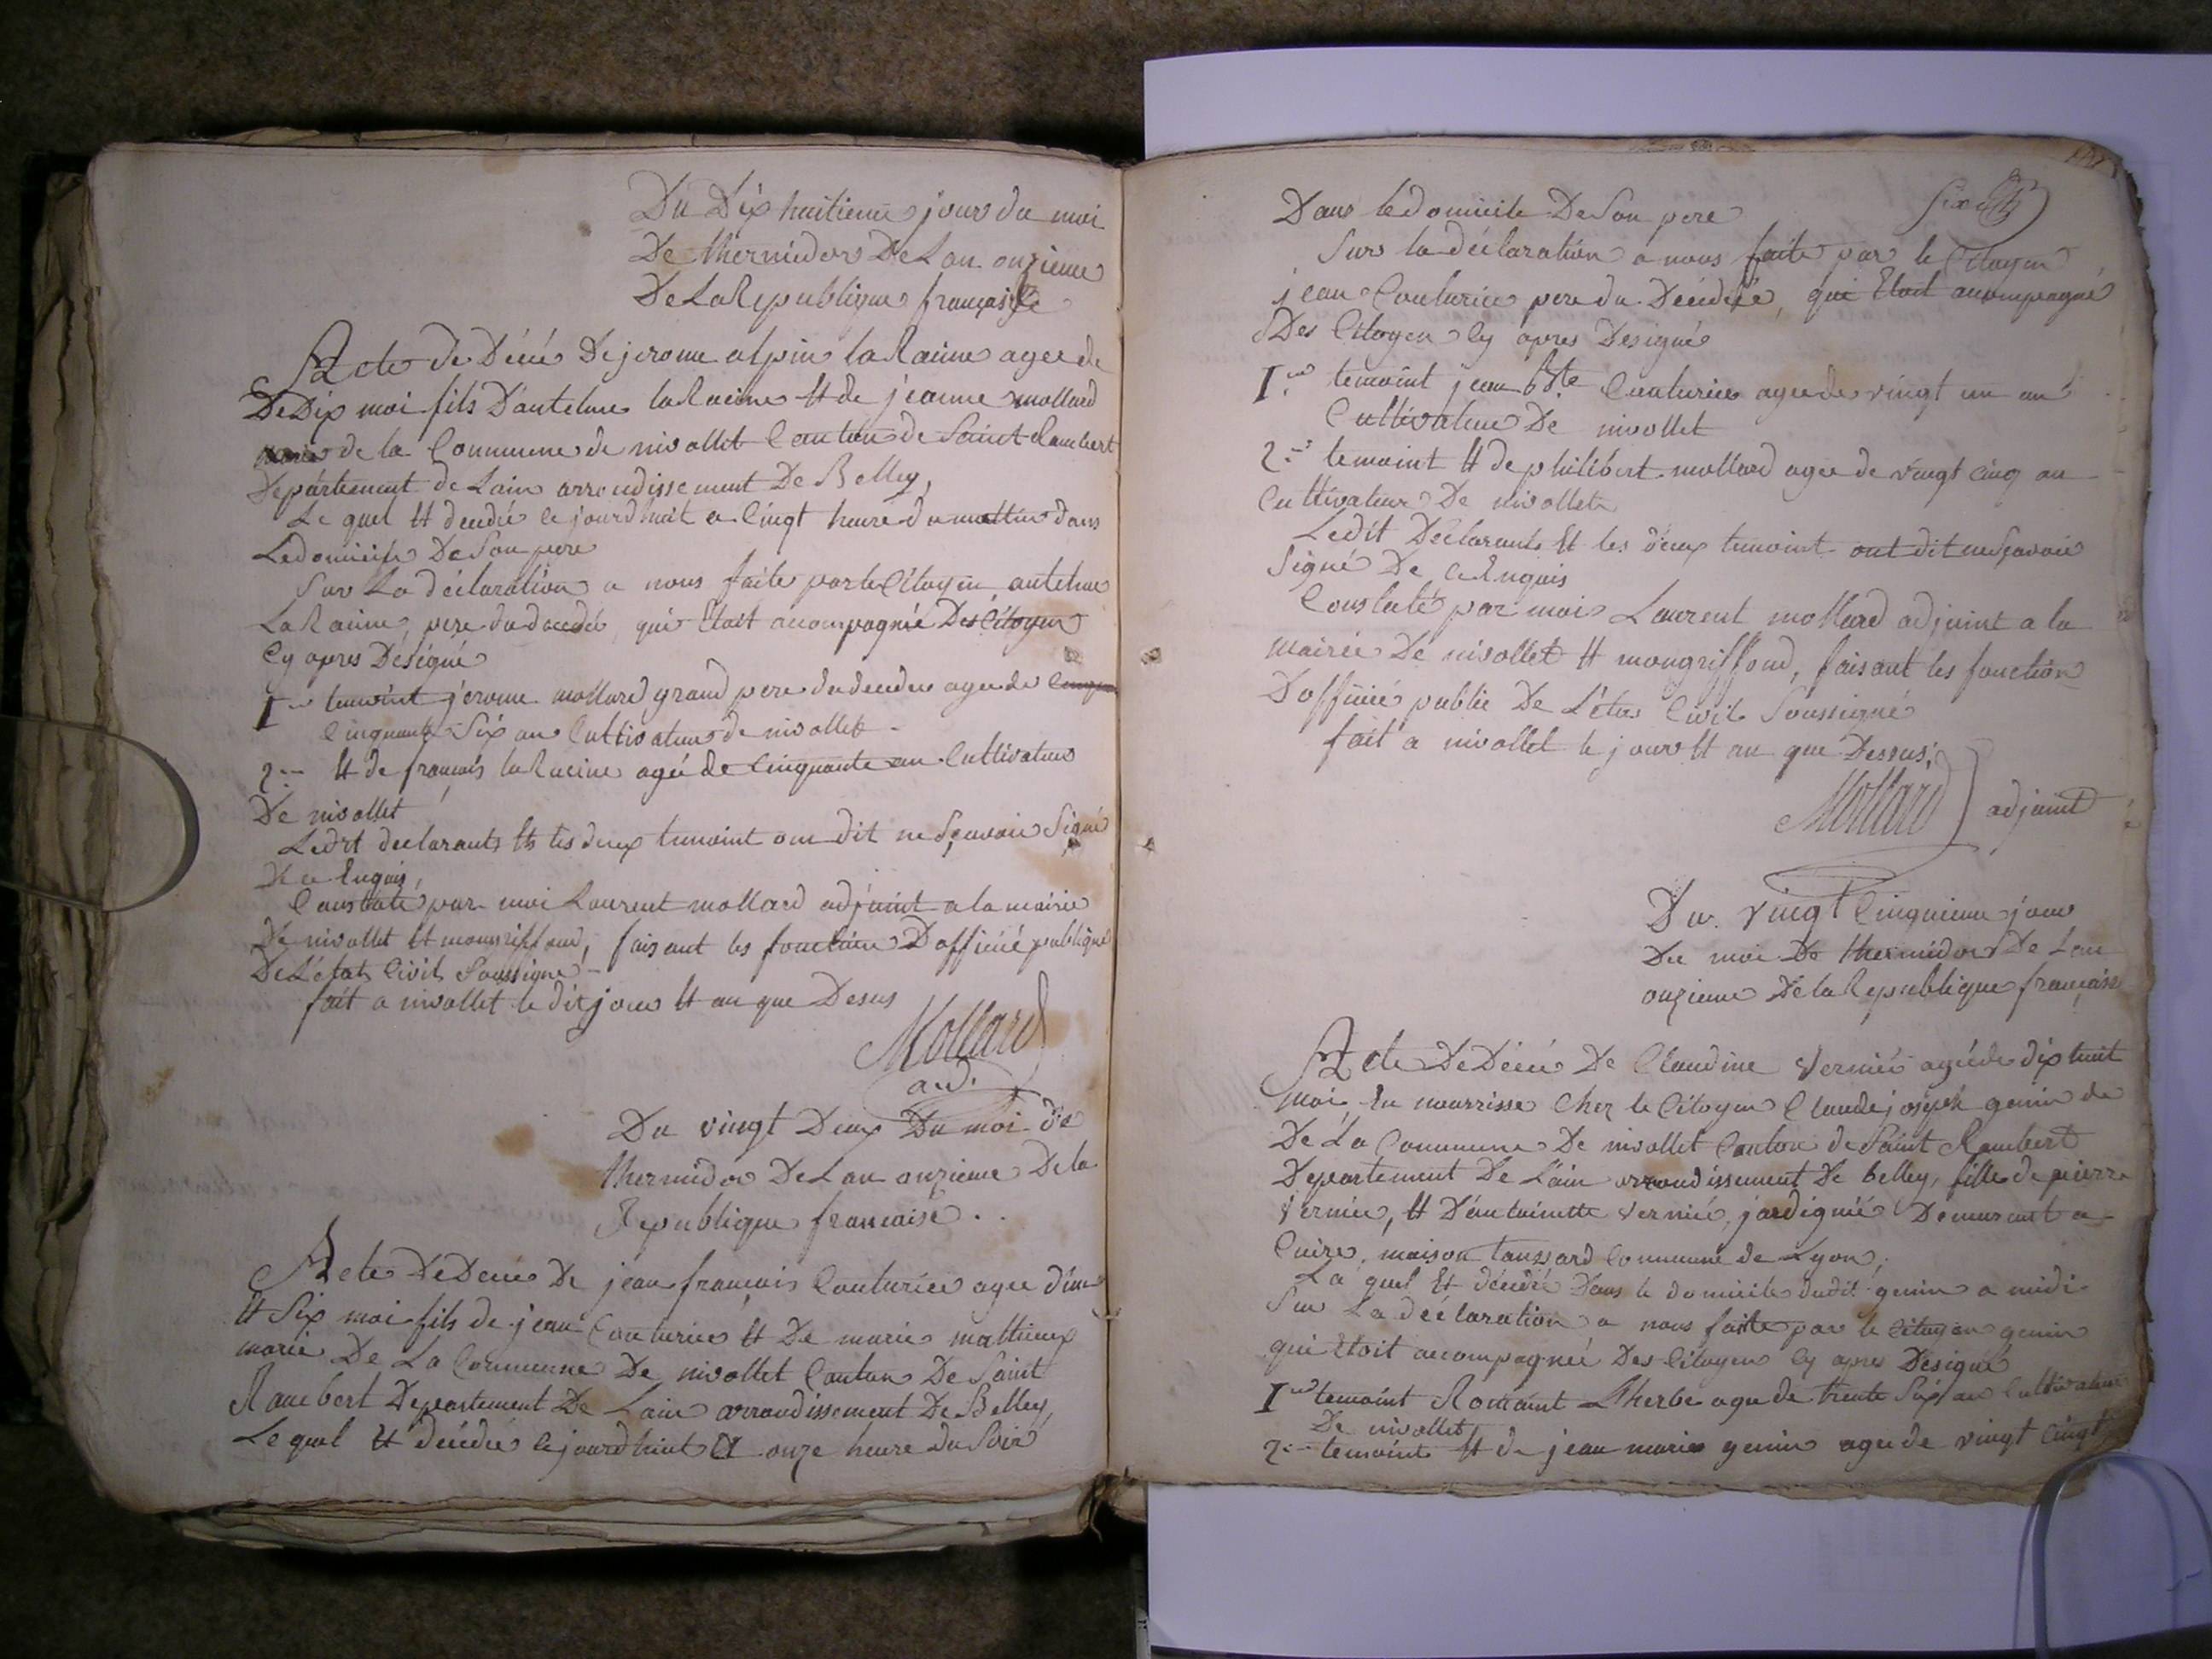 Du Dix huitieme jour du moi
De thermidor De Lan onzieme
De La Republique française
Acte de Décé De jerome alpin laRacine agee de
De Dix moi fils D'antelme laRacine Et de jeanne mollard
de la Commune de nivollet Canton de Saint Rambert
Departement de Lain arrondissement De Belley,
Le quel Et decedée ce jourdhuit a Cingt heure du mattin dans
Le domicile De Son pere
Sur La déclaration a nous faite par le Citoyen antelme
La Racine, pere du decedé, qui Etoit accompagnié Des Citoyen
Cy apres Designé
1er temoint jerome mollard grand pere du decedee agee de
Cinquante Six an Cultivateur de nivollet
2me Et de françois laRacine agée de Cinquante an Cultivateur
De nivollet
Ledit declarants Et les deux temoint on dit ne Sçavoir Signé
De ce Enquis,
Constaté par moi Laurent mollard adjoint a la mairie
De nivollet Et mongriffond, faisant les fonction D'officié publique
De L'état Civil Soussigné
fait a nivollet le dit jour Et an que Desus
Mollard
adj.
Du vingt Deux Du moi de
thermidor De Lan onzieme De la
Republique francaise.
Acte De Decé De jean françois Couturier agee d'un
Et Six moi fils de jean Couturier Et De marie mathieux
marié De La Commune De nivollet Canton De Saint
Rambert Departement De Lain arrondissement De Belley,
Le quel Et décédée ce jourdhuit a onze heure du Soir
Dans le domicile De Son pere
Six
Sur la déclaration a nous faite par le Citoyen
jean Couturier pere du Décédé, qui Etoit accompagné
Des Citoyen Cy apres Designé
1er temoint jean bste Couturier agee de vingt un an
Cultivateur De nivollet
2me temoint Et de philibert mollard agee de vingt Cinq an
Cultivateur De nivollet
Ledit Déclarants Et les deux temoint ont dit ne Sçavoir
Signé De ce Enquis
Constaté par moi Laurent mollard adjoint a la
mairie De nivollet Et mongriffond, faisant les fonction
D'officié public De L'état Civil Soussigné
fait a nivollet le jour Et an que Dessus,
Mollard adjoint
Du vingt Cinquieme jour
Du moi De thermidor De Lan
onzieme De la Republique française
Acte De Décé De Claudine Vernié agée de dix huit
moi En nourrisse Cher le Citoyen Claude joseph genin de
De La Commune De nivollet Canton de Saint Rambert
Departement De Lain arrondissement De belley, fille de pierre
Vernié, Et D'antoinette Vernié, jardignié Demeurant a
Cuire, maison Commune de Lyon,
La quel Et décédé Dans le domicile dudit genin a midi
Sur La déclaration a nous faite par le Citoyen genin
qui Etoit accompagnée Des Citoyen Cy apres Désigné
1er temoint Romaint Lherbe agee de trente Six an Cultivateur
De nivollet
2me temoint Et de jean marie genin agee de vingt Cingt